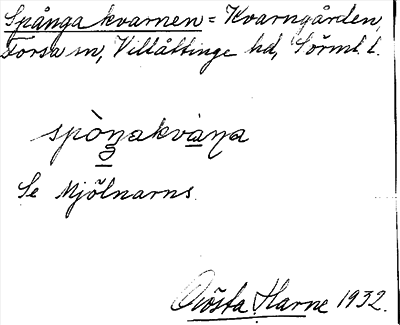 Spånga kvarnen = Kvarngården,
Forsa sn, Villåttinge hd, Sörml. l.
spòŋakvàṇa
Se Mjölnarns.
Gösta Harne 1932.